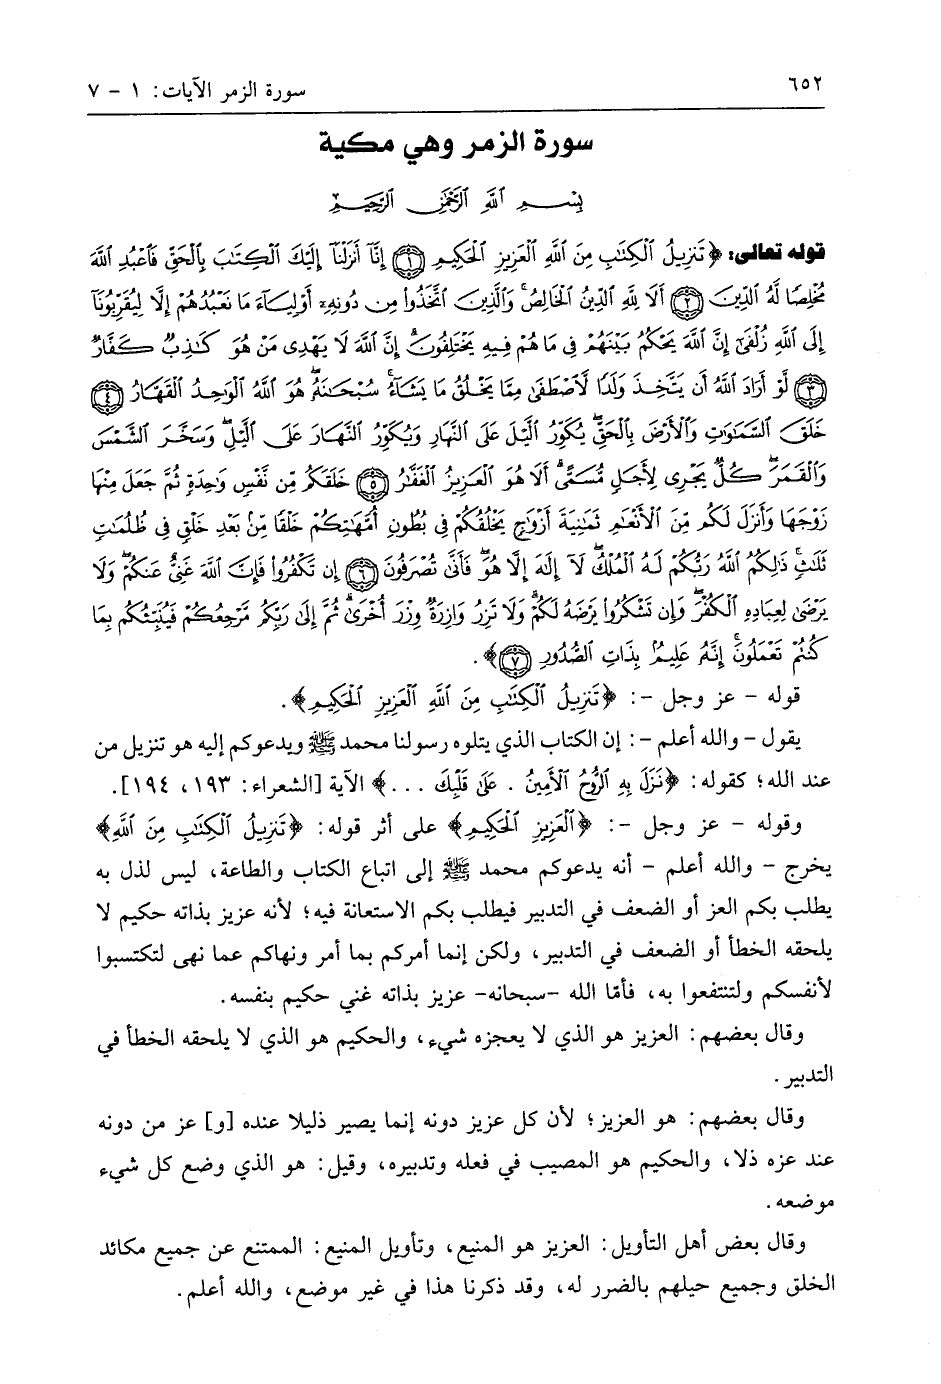 ٦٥٢ سورة الزمر الآيات: ١ - ٧
سورة الزمر وهي مكية
بِسْمِ اللَّهِ الرَّحْمَٰنِ الرَّحِيمِ
قوله تعالى: ﴿تَنزِيلُ الْكِتَابِ مِنَ اللَّهِ الْعَزِيزِ الْحَكِيمِ ﴿١﴾ إِنَّا أَنزَلْنَا إِلَيْكَ الْكِتَابَ بِالْحَقِّ فَاعْبُدِ اللَّهَ
مُخْلِصًا لَّهُ الدِّينَ ﴿٢﴾ أَلَا لِلَّهِ الدِّينُ الْخَالِصُ وَالَّذِينَ اتَّخَذُوا مِن دُونِهِ أَوْلِيَاءَ مَا نَعْبُدُهُمْ إِلَّا لِيُقَرِّبُونَا
إِلَى اللَّهِ زُلْفَىٰ إِنَّ اللَّهَ يَحْكُمُ بَيْنَهُمْ فِي مَا هُمْ فِيهِ يَخْتَلِفُونَ إِنَّ اللَّهَ لَا يَهْدِي مَنْ هُوَ كَاذِبٌ كَفَّارٌ
﴿٣﴾ لَّوْ أَرَادَ اللَّهُ أَن يَتَّخِذَ وَلَدًا لَّاصْطَفَىٰ مِمَّا يَخْلُقُ مَا يَشَاءُ سُبْحَانَهُ هُوَ اللَّهُ الْوَاحِدُ الْقَهَّارُ ﴿٤﴾
خَلَقَ السَّمَاوَاتِ وَالْأَرْضَ بِالْحَقِّ يُكَوِّرُ اللَّيْلَ عَلَى النَّهَارِ وَيُكَوِّرُ النَّهَارَ عَلَى اللَّيْلِ وَسَخَّرَ الشَّمْسَ
وَالْقَمَرَ كُلٌّ يَجْرِي لِأَجَلٍ مُّسَمًّى أَلَا هُوَ الْعَزِيزُ الْغَفَّارُ ﴿٥﴾ خَلَقَكُم مِّن نَّفْسٍ وَاحِدَةٍ ثُمَّ جَعَلَ مِنْهَا
زَوْجَهَا وَأَنزَلَ لَكُم مِّنَ الْأَنْعَامِ ثَمَانِيَةَ أَزْوَاجٍ يَخْلُقُكُمْ فِي بُطُونِ أُمَّهَاتِكُمْ خَلْقًا مِّن بَعْدِ خَلْقٍ فِي ظُلُمَاتٍ
ثَلَاثٍ ذَٰلِكُمُ اللَّهُ رَبُّكُمْ لَهُ الْمُلْكُ لَا إِلَٰهَ إِلَّا هُوَ فَأَنَّىٰ تُصْرَفُونَ ﴿٦﴾ إِن تَكْفُرُوا فَإِنَّ اللَّهَ غَنِيٌّ عَنكُمْ وَلَا
يَرْضَىٰ لِعِبَادِهِ الْكُفْرَ وَإِن تَشْكُرُوا يَرْضَهُ لَكُمْ وَلَا تَزِرُ وَازِرَةٌ وِزْرَ أُخْرَىٰ ثُمَّ إِلَىٰ رَبِّكُم مَّرْجِعُكُمْ فَيُنَبِّئُكُم بِمَا
كُنتُمْ تَعْمَلُونَ إِنَّهُ عَلِيمٌ بِذَاتِ الصُّدُورِ ﴿٧﴾﴾.
قوله - عز وجل -: ﴿تَنزِيلُ الْكِتَابِ مِنَ اللَّهِ الْعَزِيزِ الْحَكِيمِ﴾.
يقول - والله أعلم -: إن الكتاب الذي يتلوه رسولنا محمد ﷺ ويدعوكم إليه هو تنزيل من
عند الله؛ كقوله: ﴿نَزَلَ بِهِ الرُّوحُ الْأَمِينُ . عَلَىٰ قَلْبِكَ ...﴾ الآية [الشعراء: ١٩٣، ١٩٤].
وقوله - عز وجل -: ﴿الْعَزِيزِ الْحَكِيمِ﴾ على أثر قوله: ﴿تَنزِيلُ الْكِتَابِ مِنَ اللَّهِ﴾
يخرج - والله أعلم - أنه يدعوكم محمد ﷺ إلى اتباع الكتاب والطاعة، ليس لذل به
يطلب بكم العز أو الضعف في التدبير فيطلب بكم الاستعانة فيه؛ لأنه عزيز بذاته حكيم لا
يلحقه الخطأ أو الضعف في التدبير، ولكن إنما أمركم بما أمر ونهاكم عما نهى لتكتسبوا
لأنفسكم ولتنتفعوا به، فأمّا الله -سبحانه- عزيز بذاته غني حكيم بنفسه.
وقال بعضهم: العزيز هو الذي لا يعجزه شيء، والحكيم هو الذي لا يلحقه الخطأ في
التدبير.
وقال بعضهم: هو العزيز؛ لأن كل عزيز دونه إنما يصير ذليلا عنده [و] عز من دونه
عند عزه ذلا، والحكيم هو المصيب في فعله وتدبيره، وقيل: هو الذي وضع كل شيء
موضعه.
وقال بعض أهل التأويل: العزيز هو المنيع، وتأويل المنيع: الممتنع عن جميع مكائد
الخلق وجميع حيلهم بالضرر له، وقد ذكرنا هذا في غير موضع، والله أعلم.